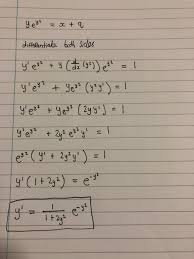 y e^{y²} = x + 2
differentiate both sides
y' e^{y²} + y (d/dx (y²)) e^{y²} = 1
y' e^{y²} + y e^{y²} (d/dx (y²)) = 1
y' e^{y²} + y e^{y²} (2y y') = 1
y' e^{y²} + 2y² e^{y²} y' = 1
e^{y²} (y' + 2y² y') = 1
y' (1 + 2y²) = e^{-y²}
y' = 1/(1 + 2y²) e^{-y²}